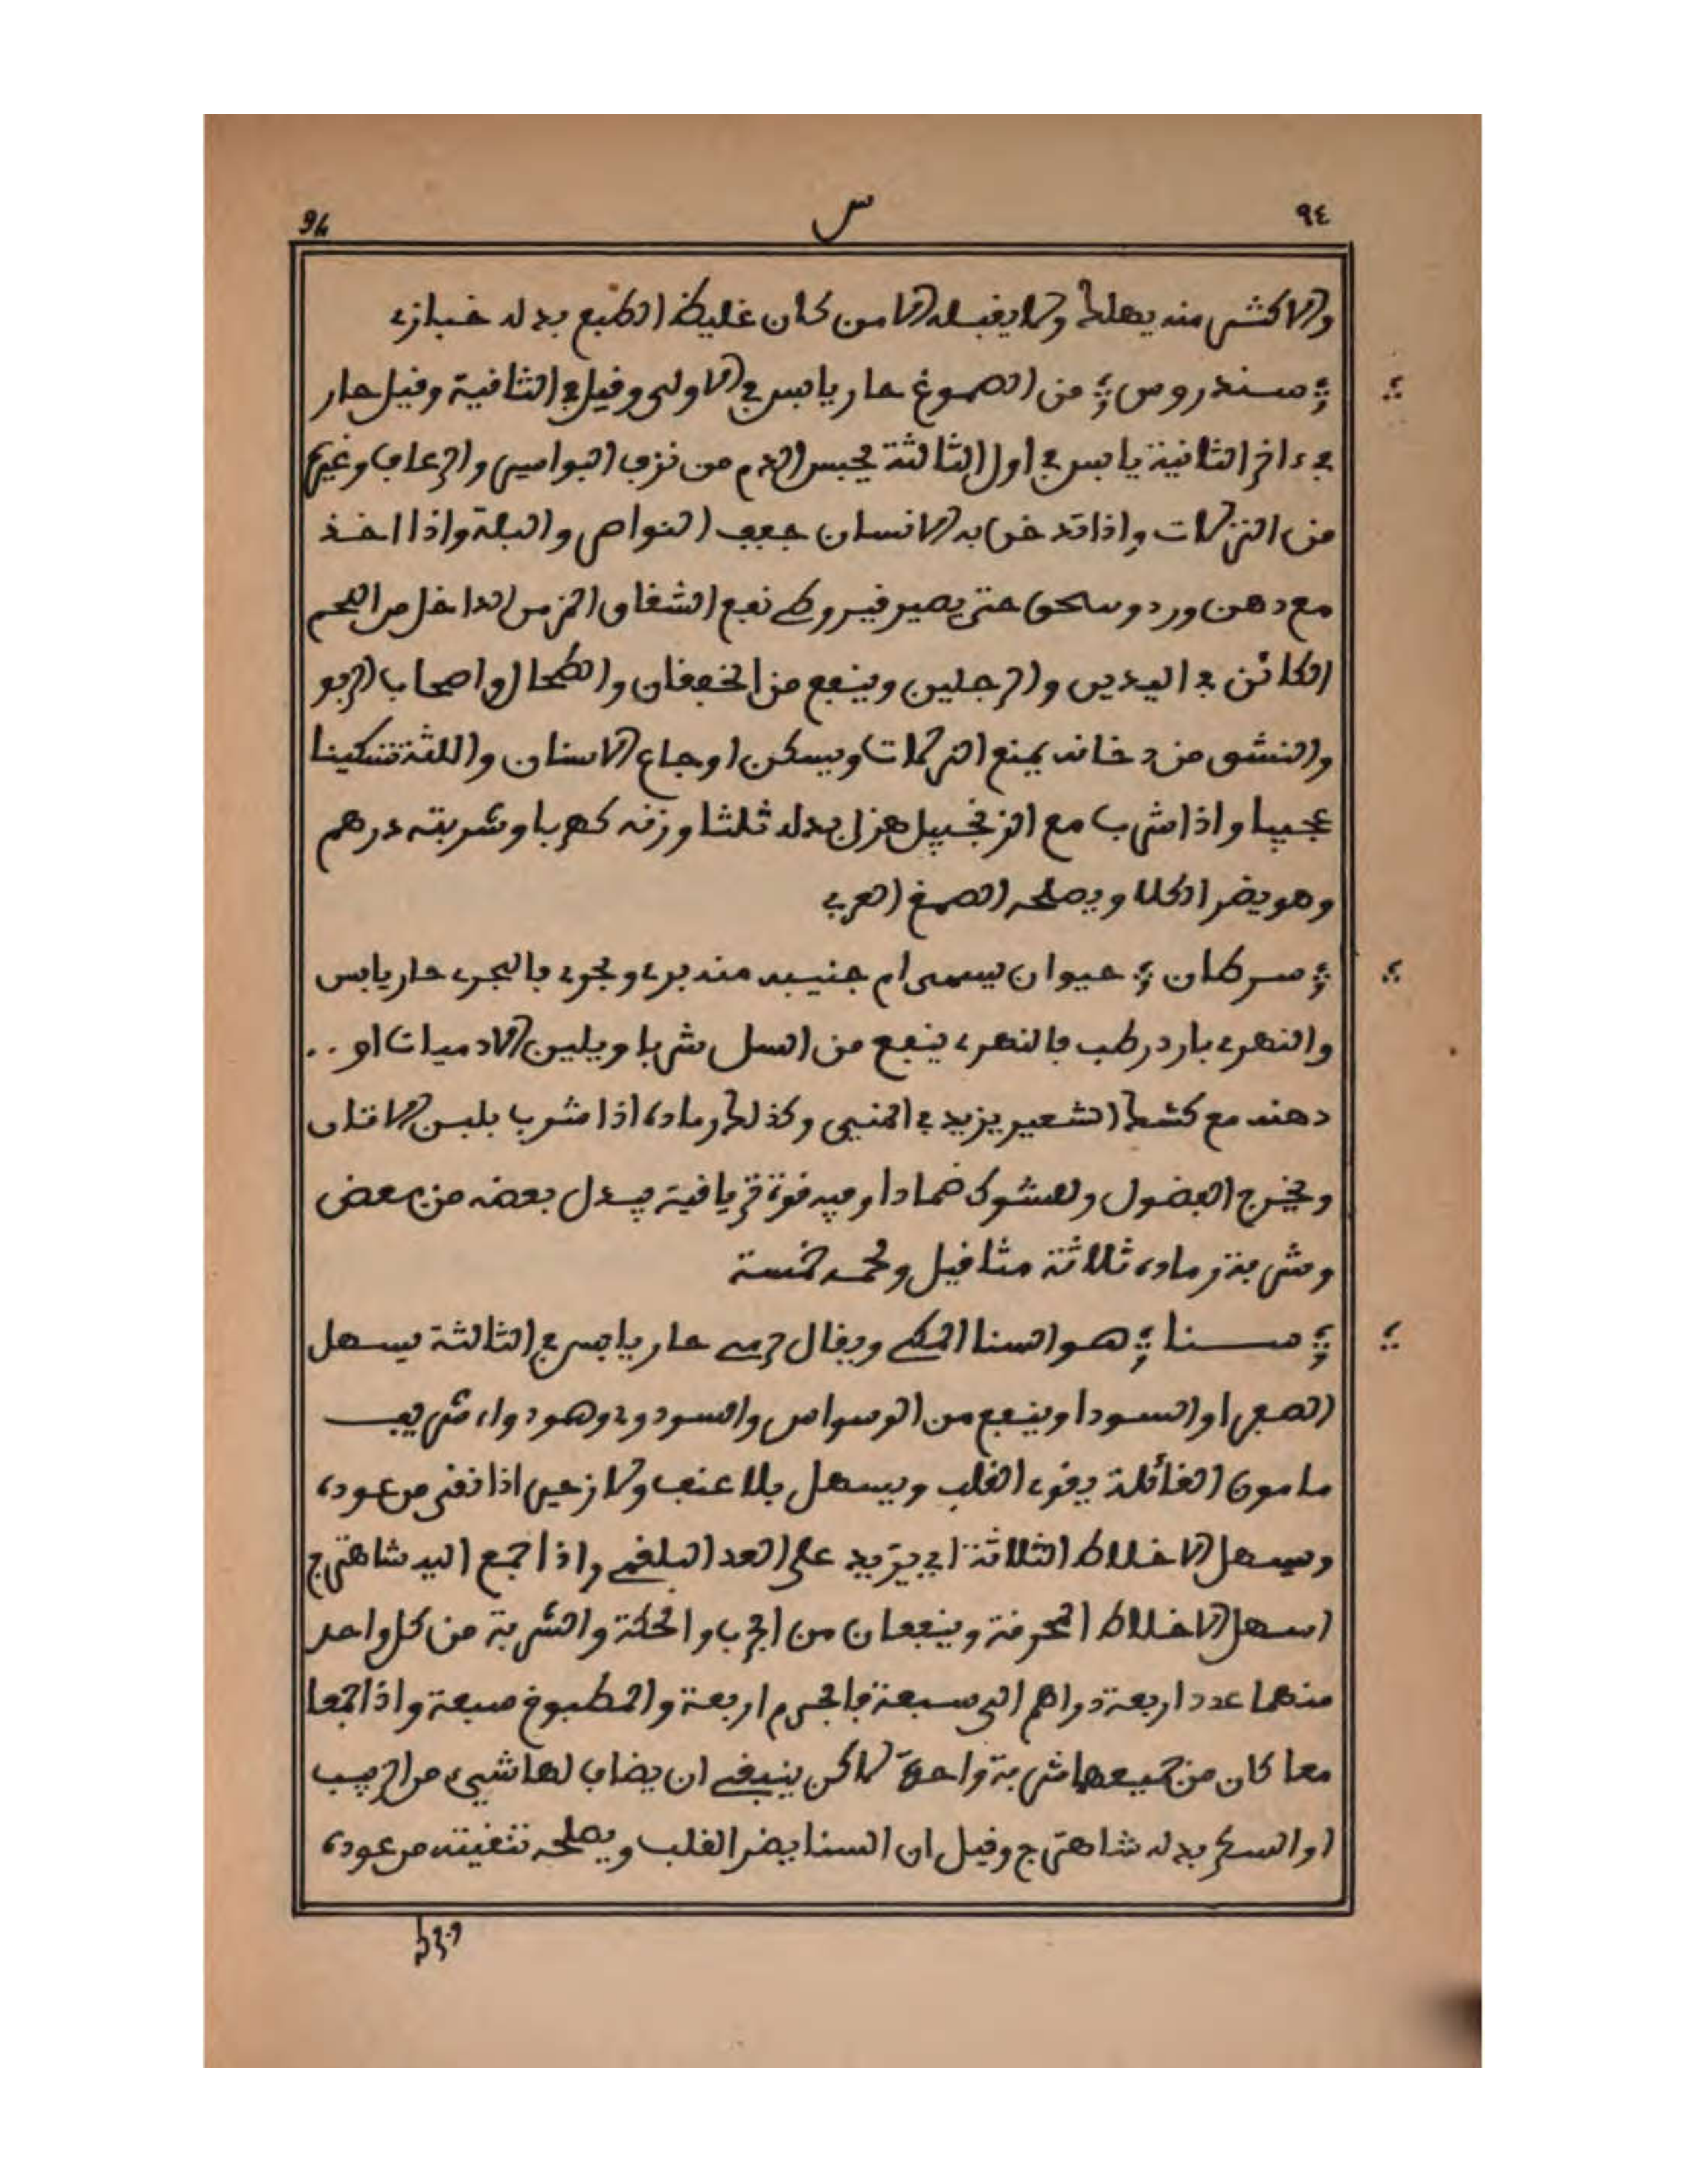 ٩٤ س 94
والاكثر منه يهلك ولا يقبله الا من كان غليظ الطبع بدله خبازى
؛ سندروس ؛ من الصموغ حار يابس في الاولى وقيل في الثانية وقيل حار
في ءاخر الثانية يابس في اول الثالثة يحبس الدم من نزف البواسير والرعاف وغيره
من النزلات واذا تدخن به الانسان جفف النواصر والبلة واذا اخذ
مع دهن ورد وسحق حتى يصير قيروطي نفع الشقاق المزمن الداخل من اللحم
الكائن في اليدين والرجلين وينفع من الخفقان والطحال واصحاب الربو
والنشق من دخانه يمنع النزلات ويسكن اوجاع الاسنان واللثة تسكينا
عجيبا واذا شرب مع الزنجبيل هزل بدله ثلثا وزنه كهربا وشربته درهم
وهو يضر الكلا ويصلحه الصمغ العربي
؛ سرطان ؛ حيوان يسمى ام جنيبه منه بري وبحري فالبحري حار يابس
والنهري بارد رطب فالنهري ينفع من السل شربا ويلين الادميات او ..
دهنه مع كشك الشعير يزيد في المني وكذلك رماده اذا شرب بلبن الاتان
ويخرج الفضول والشوك ضمادا وفيه قوة ترياقية يبدل بعضه من بعض
وشربة رماده ثلاثة مثاقيل ولحمه خمسة
؛ سنا ؛ هو السنا المكي ويقال حرمي حار يابس في الثالثة يسهل
الصفرا والسودا وينفع من الوسواس والسوداوي وهو دواء شريف
مامون الغائلة يقوي القلب ويسهل بلا عنف ولا زحير اذا نقي من عوده
ويسهل الاخلاط الثلاثة اي يزيد على العد البلغم واذا جمع اليه شاهترج
اسهل الاخلاط المحرقة وينفعان من الجرب والحكة والشربة من كل واحد
منهما عدد اربعة دراهم الى سبعة فالجرم اربعة والمطبوخ سبعة واذا اجمعا
معا كان من جميعهما شربة واحدة لاكن ينبغي ان يضاف لها شيء من الزبيب
او السكر بدله شاهترج وقيل ان السنا يضر القلب ويصلحه تنقيته من عوده